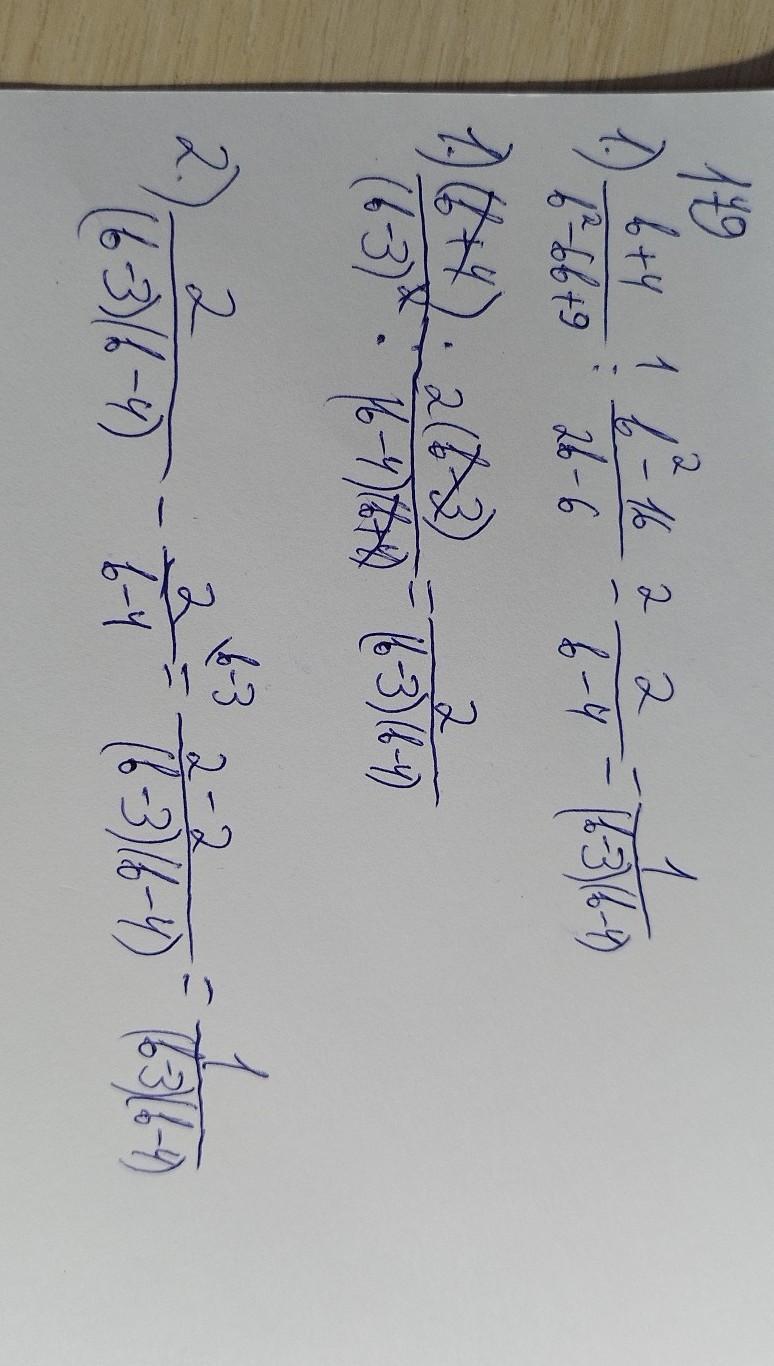 179
1.) (b+4)/(b²-6b+9) :¹ (b²-16)/(2b-6) -² 2/(b-4) = 1/((b-3)(b-4))
1.) (b+4)/(b-3)² · 2(b-3)/((b-4)(b+4)) = 2/((b-3)(b-4))
2.) 2/((b-3)(b-4)) - 2/(b-4) \b-3 = (2-2)/((b-3)(b-4)) = 1/((b-3)(b-4))